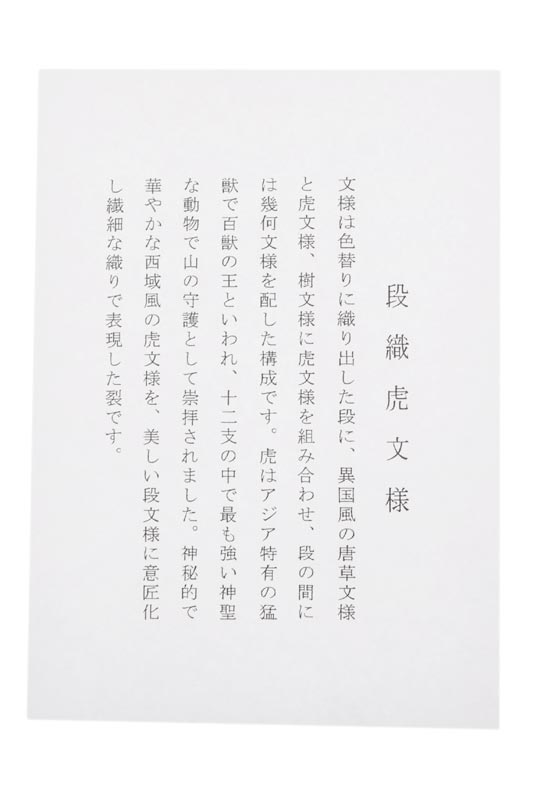 段織虎文様
文様は色替りに織り出した段に、異国風の唐草文様
と虎文様、樹文様に虎文様を組み合わせ、段の間に
は幾何文様を配した構成です。虎はアジア特有の猛
獣で百獣の王といわれ、十二支の中で最も強い神聖
な動物で山の守護として崇拝されました。神秘的で
華やかな西域風の虎文様を、美しい段文様に意匠化
し繊細な織りで表現した裂です。